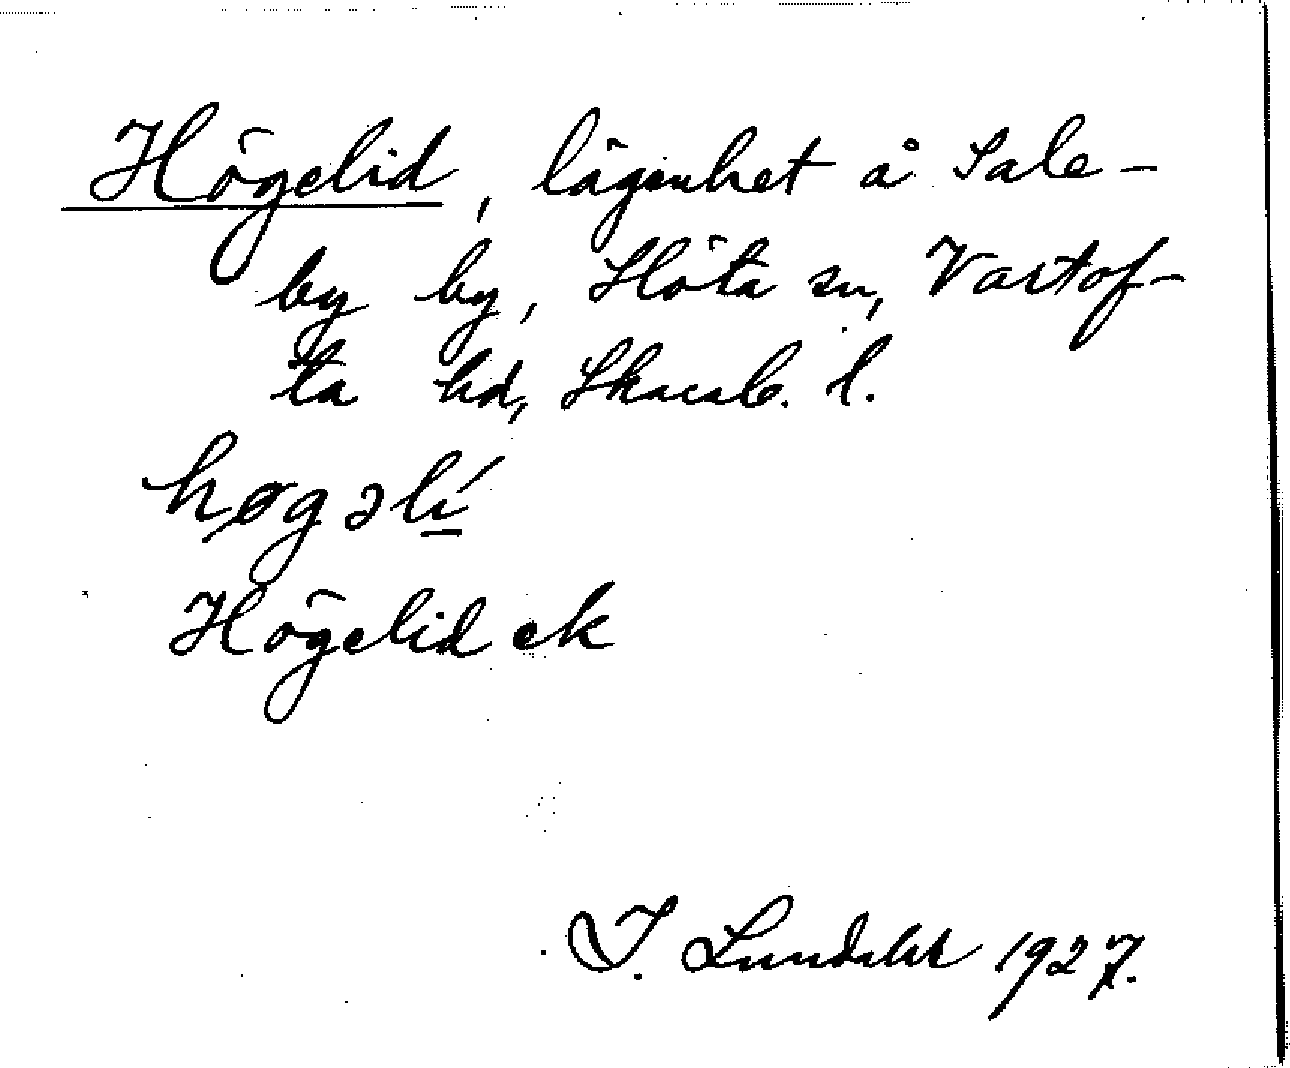 Högelid, lägenhet å Sale-
by by, Slöta sn, Vartof-
ta hd, Skarab. l.
høgəlí
Högelid ek
I. Lundahl 1927.